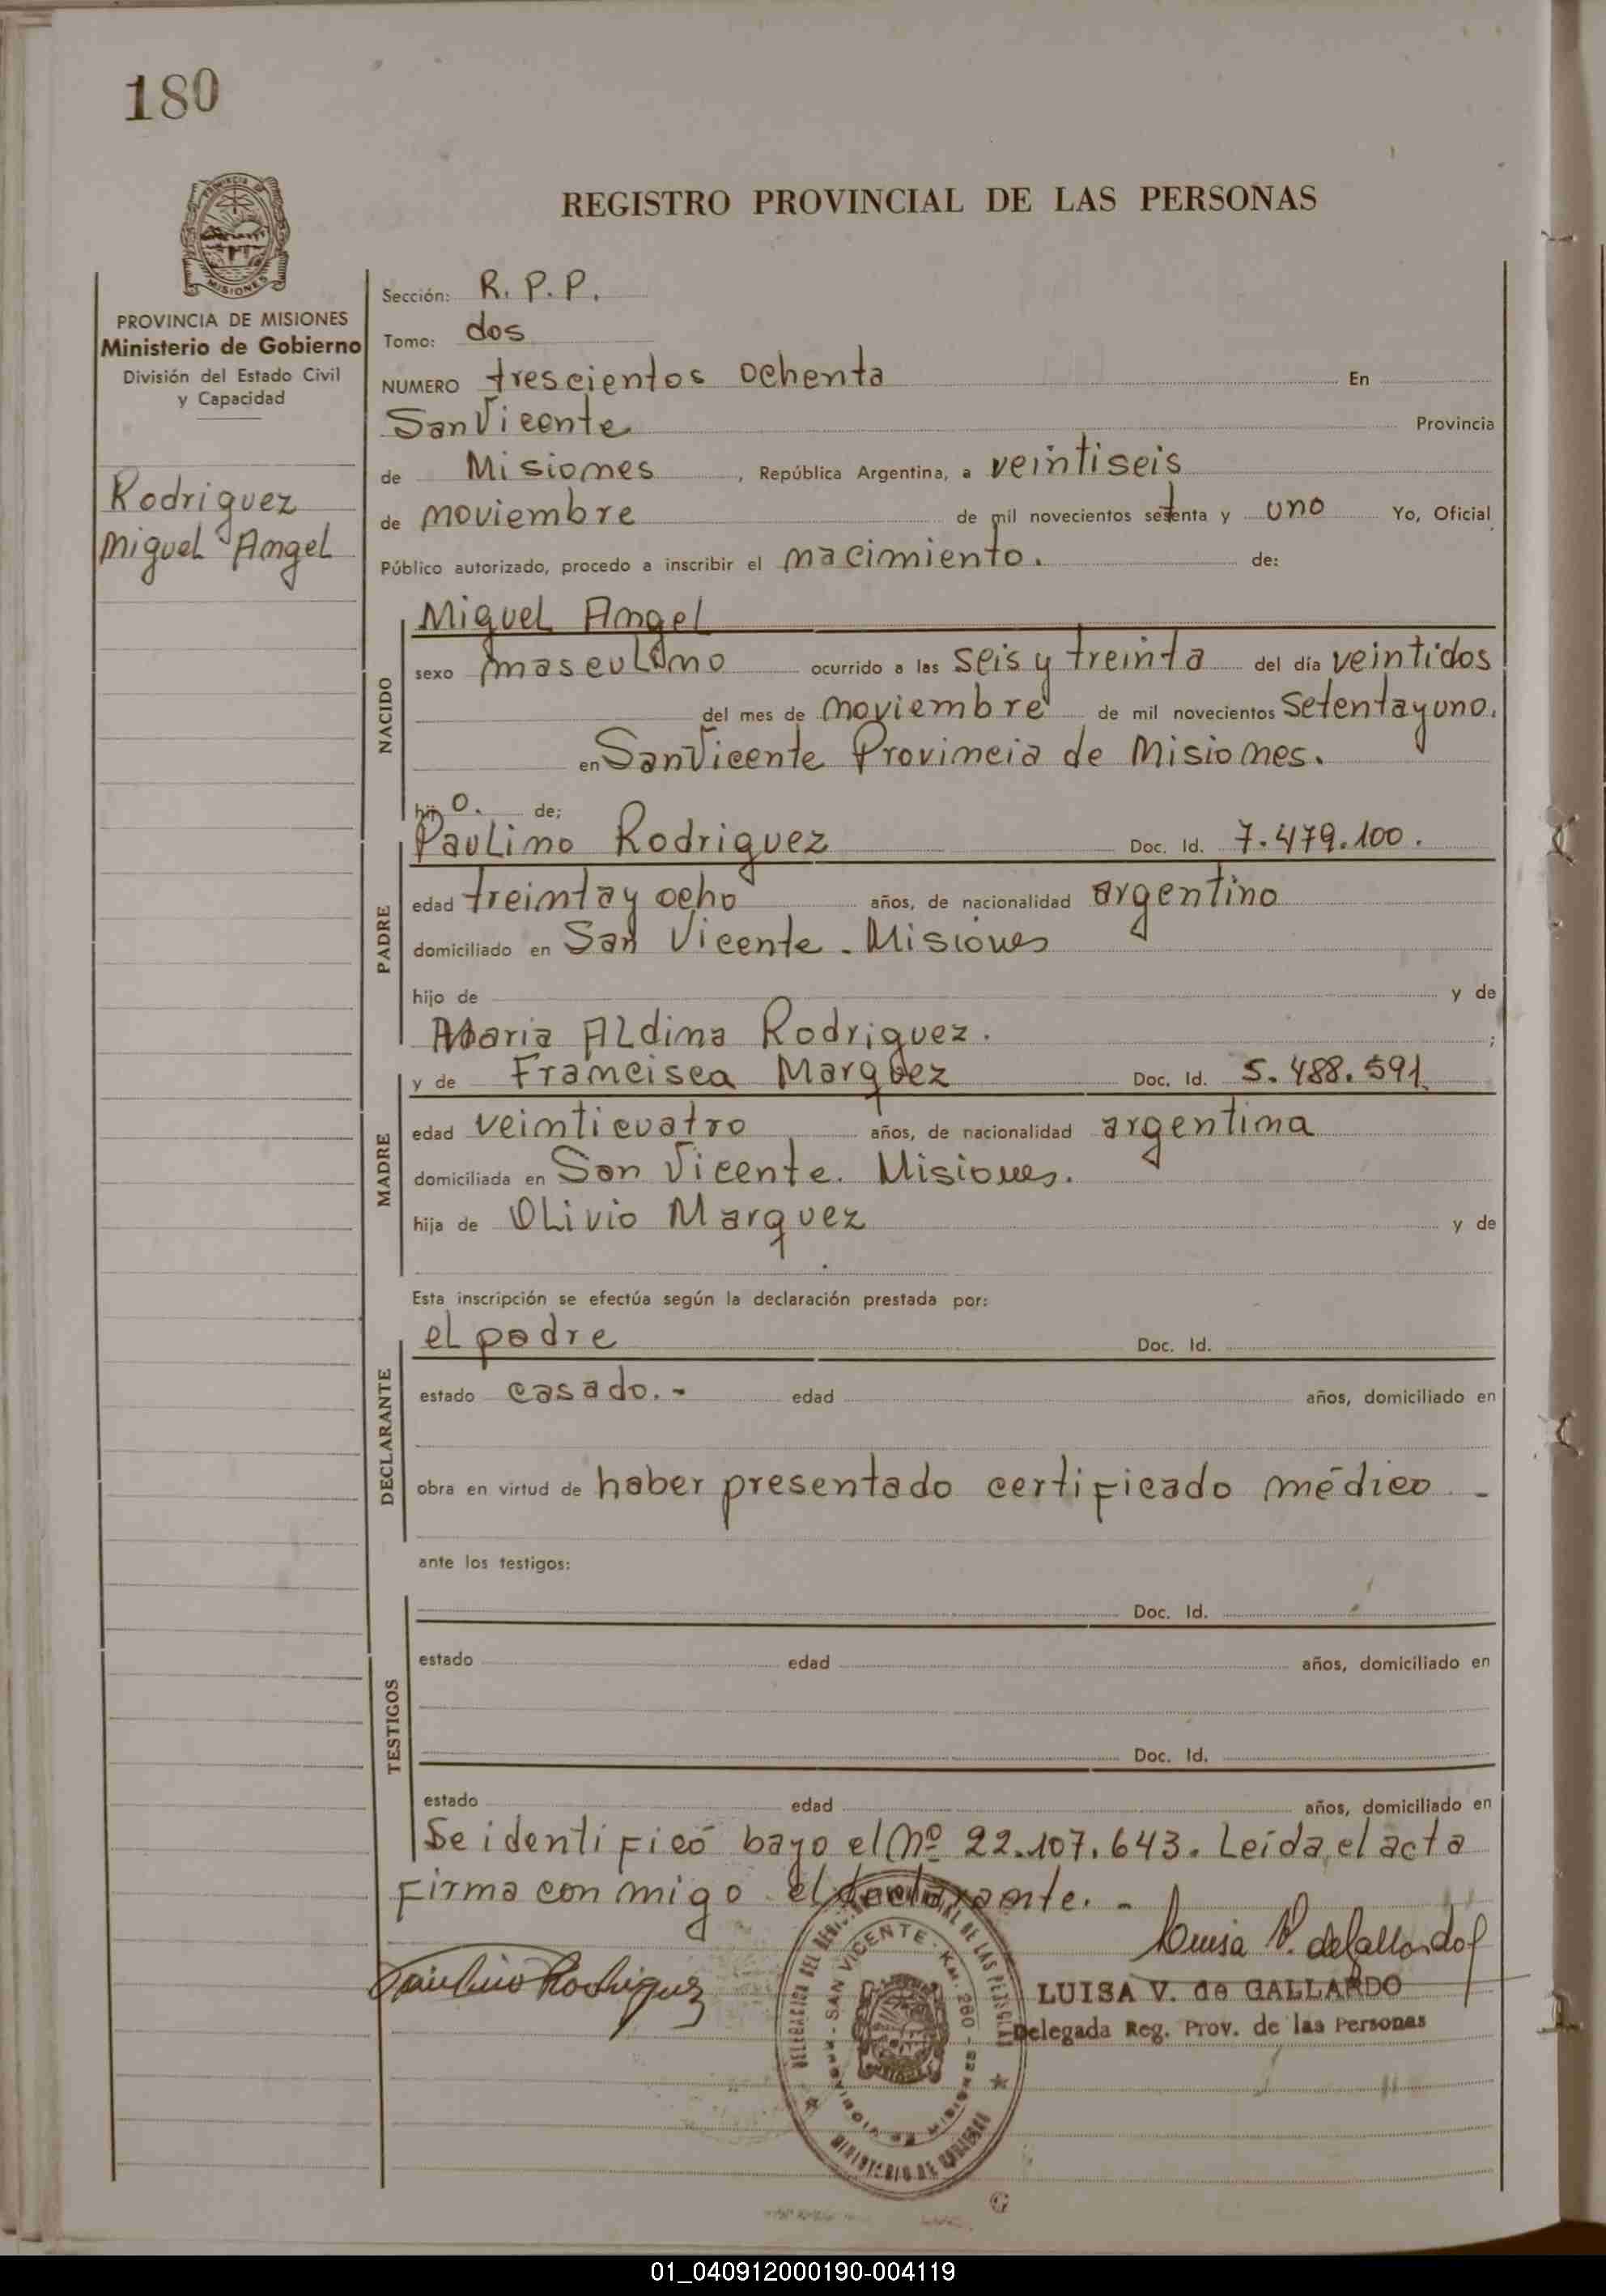 180
REGISTRO PROVINCIAL DE LAS PERSONAS
PROVINCIA DE MISIONES
MISIONES
PROVINCIA DE MISIONES
Ministerio de Gobierno
División del Estado Civil
y Capacidad
Rodriguez
Miguel Angel
Sección: R. P. P.
Tomo: dos
NUMERO trescientos ochenta En
San Vicente Provincia
de Misiones, República Argentina, a veintiseis
de noviembre de mil novecientos setenta y uno Yo, Oficial
Público autorizado, procedo a inscribir el nacimiento. de:
NACIDO
Miguel Angel
sexo masculino ocurrido a las seis y treinta del día veintidos
del mes de noviembre de mil novecientos setenta y uno.
en San Vicente Provincia de Misiones.
hijo. de;
PADRE
Paulino Rodriguez Doc. Id. 7.479.100.
edad treinta y ocho años, de nacionalidad argentino
domiciliado en San Vicente - Misiones
hijo de y de
Maria Aldina Rodriguez. ;
MADRE
y de Francisca Marquez Doc. Id. 5.488.591.
edad veinticuatro años, de nacionalidad argentina
domiciliada en San Vicente. Misiones.
hija de Olivio Marquez y de
Esta inscripción se efectúa según la declaración prestada por:
DECLARANTE
el padre Doc. Id.
estado casado. - edad años, domiciliado en
obra en virtud de haber presentado certificado médico -
ante los testigos:
TESTIGOS
Doc. Id.
estado edad años, domiciliado en
Doc. Id.
estado edad años, domiciliado en
Se identificó bajo el Nº 22.107.643. Leída el acta
firma con migo el declarante. -
Paulino Rodriguez
Luisa V. de Gallardo
LUISA V. de GALLARDO
Delegada Reg. Prov. de las Personas
DELEGACION DEL REGISTRO PROVINCIAL DE LAS PERSONAS
SAN VICENTE - KM. 280 - MISIONES
MINISTERIO DE GOBIERNO
01_040912000190-004119